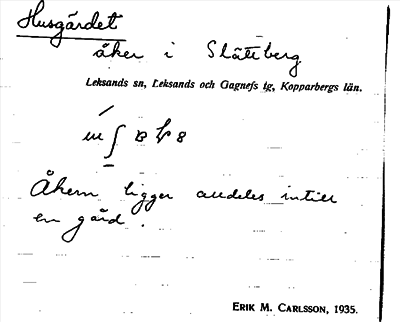 Husgärdet
åker i Slättberg
Leksands sn, Leksands och Gagnefs tg, Kopparbergs län.
Åkern ligger alldeles intill
en gård.
ERIK M. CARLSSON, 1935.